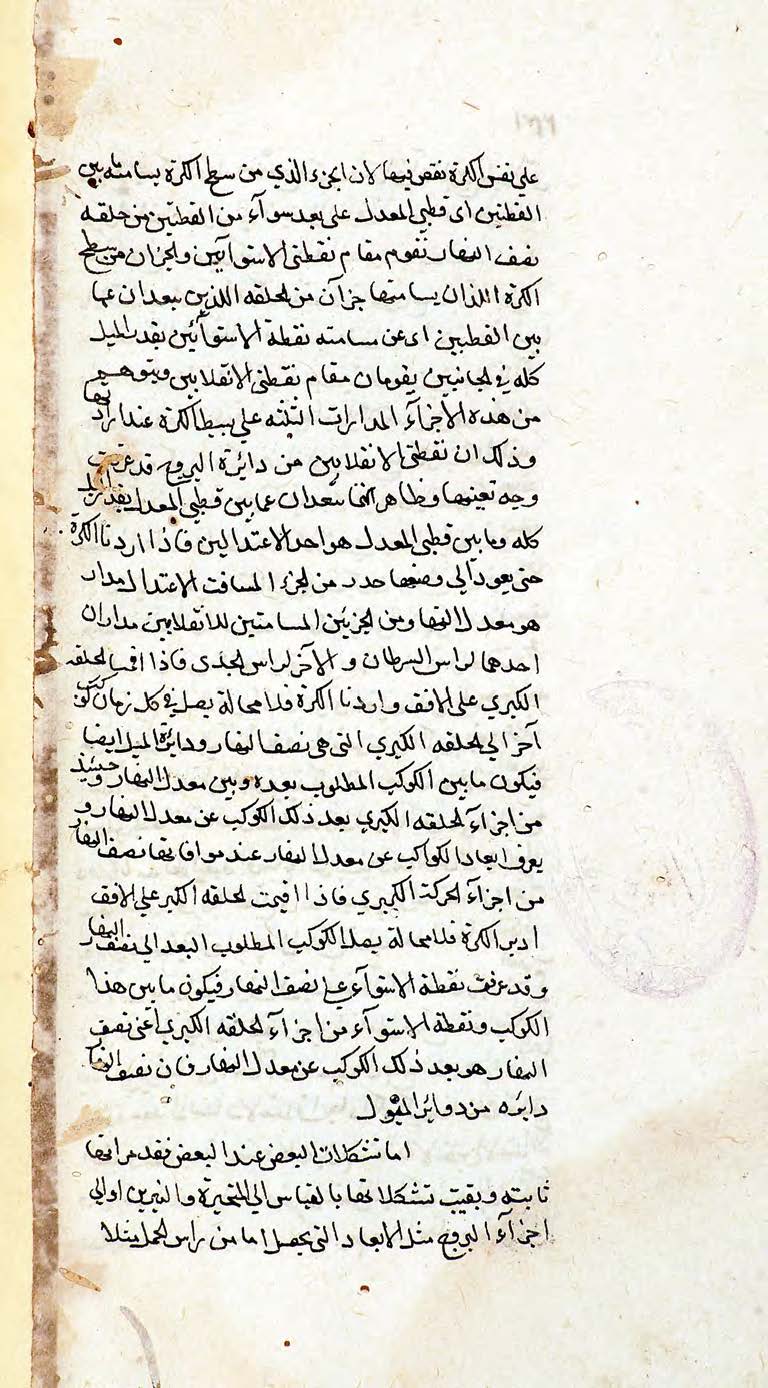 على نفس الكرة نقص فيها لان الجزء الذي من سطح الكرة يسامته بين
القطبين اى قطبي المعدل على بعد سوآء من القطبين من حلقه
نصف النهار تقوم مقام نقطتى الاستوآيين والجزان من سطح
الكرة اللذان يسامتها جزآن من الحلقه اللذين يبعدان عما
بين القطبين اى عن مسامته نقطة الاستوآئين بقدر الميل
كله فى الجانبين يقومان مقام نقطتى الانقلابين ويتوهم
من هذه الاجزآء المدارات الثلثه على بسيط الكرة عند ادارتها
وذلك ان نقطتى الانقلابين من دائرة البروج قد عرفت
وجه تعيينها وظاهر انهما يبعدان عما بين قطبي المعدل بقدر الميل
كله وما بين قطبي المعدل هو احد الاعتدالين فاذا اردنا الكرة
حتى يعود الى وضعها حدر من الجزء المسافت الاعتدال مدار
هو معدل النهار ومن الجزيئن المسامتين للانقلابين مداران
احدهما لراس السرطان والآخر لراس الجدى فاذا اقمنا الحلقه
الكبرى على الافق واردنا الكرة فلا محالة يصل فى كل زمان كوكب
آخر الى الحلقه الكبرى التى هى نصف النهار ودائرة الميل ايضا
فيكون ما بين الكوكب المطلوب بعده وبين معدل النهار وحينئذ
من اجزآء الحلقه الكبرى بعد ذلك الكوكب عن معدل النهار و
يعرف ابعاد الكواكب عن معدل النهار عند موافاتها نصف النهار
من اجزآء الحركة الكبرى فاذا اقيمت الحلقه الكبر على الافق
ادير الكرة فلا محالة يصل الكوكب المطلوب البعد الى نصف النهار
وقد عرفت نقطة الاستوآء على نصف النهار فيكون ما بين هذا
الكوكب ونقطة الاستوآء من اجزآء الحلقه الكبرى اعنى نصف
النهار هو بعد ذلك الكوكب عن معدل النهار فان نصف النهار
دايره من دوائر الميول
اما تشكلات البعض عند البعض فقد مر انها
ثابته وبقيت تشكلاتها بالقياس الى المتحيرة والنيرين او الى
اجزآء البروج مثل الابعاد التى يحصل اما من راس الحمل مثلا